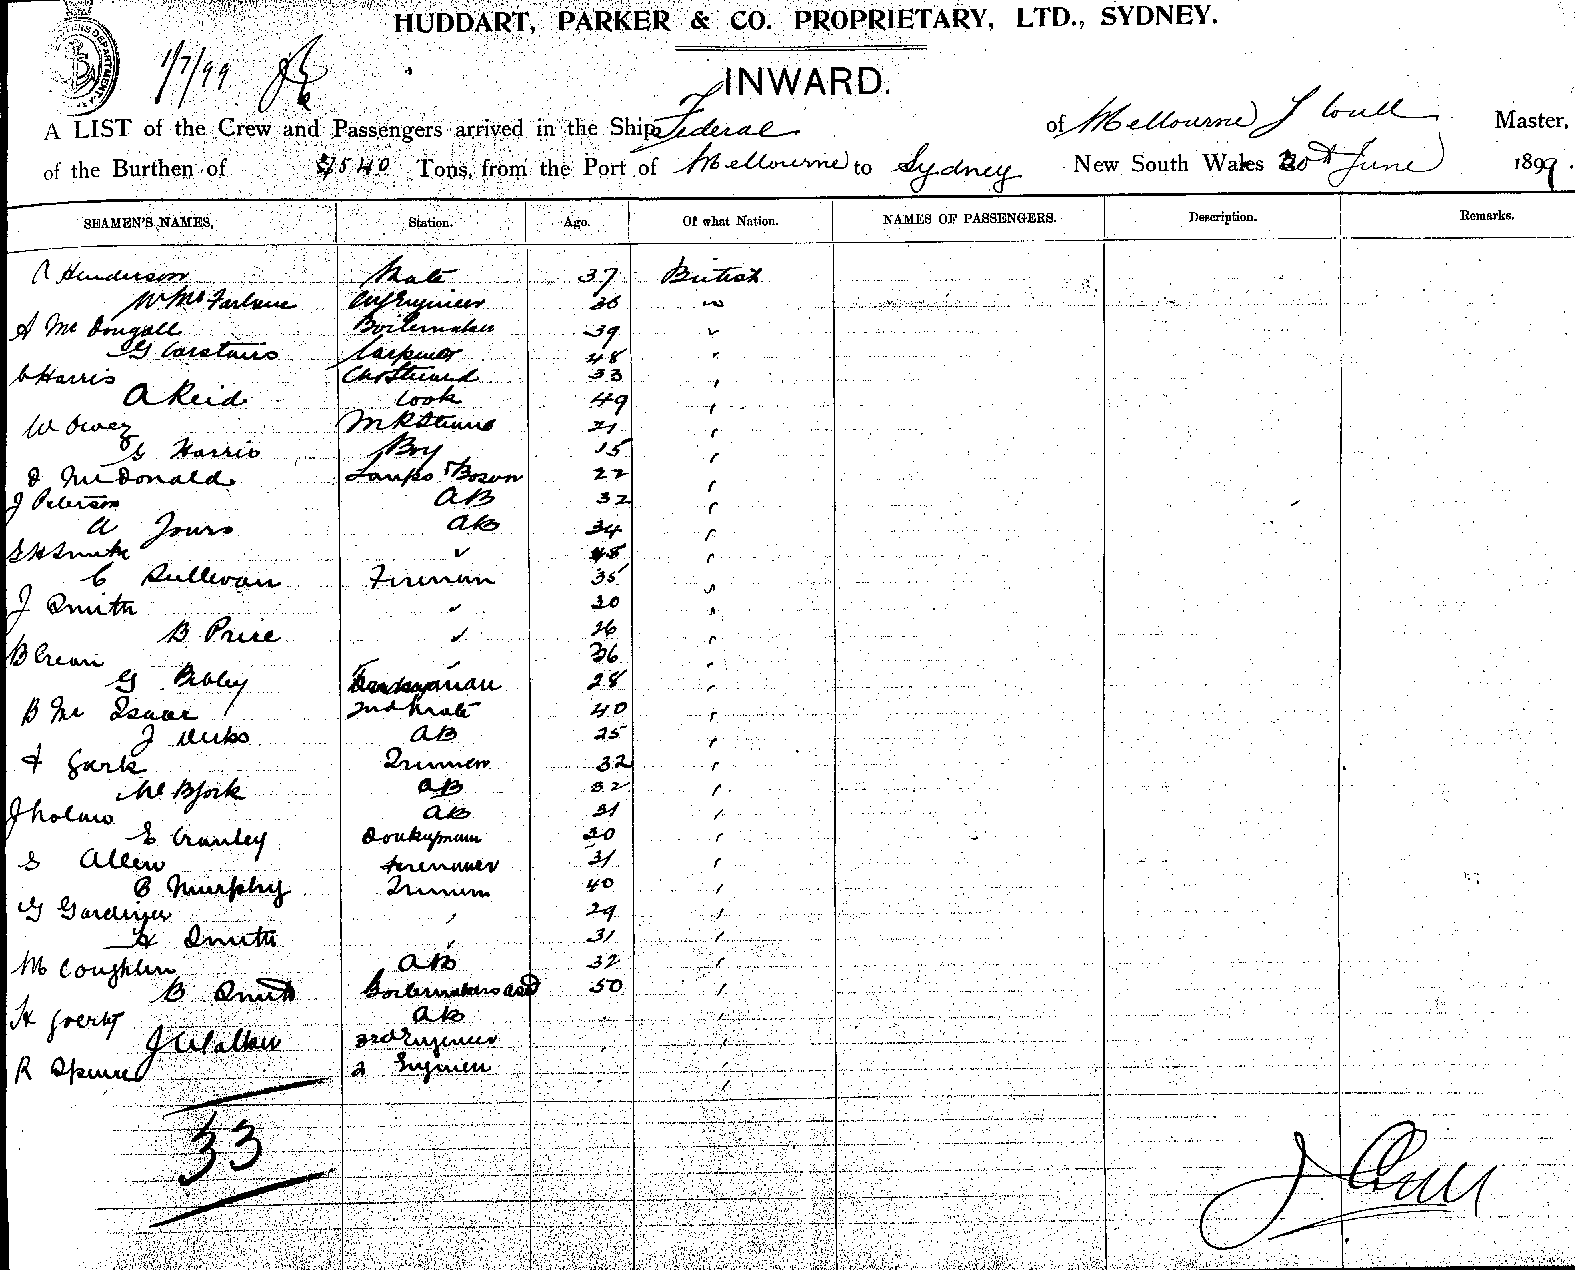 HUDDART, PARKER & CO. PROPRIETARY, LTD., SYDNEY.
1/7/99
INWARD.
A LIST of the Crew and Passengers arrived in the Ship Federal of Melbourne J Coull Master,
of the Burthen of 1540 Tons, from the Port of Melbourne to Sydney New South Wales 30th June 1899.
SEAMEN'S NAMES, Station. Age. Of what Nation. NAMES OF PASSENGERS. Description. Remarks.
Henderson Mate 37 British
W McFarlane Engineer 36 "
A McDougall Boilermaker 39 "
G Carstairs Carpenter 48 "
C Harris Ch Steward 33 "
A Reid Cook 49 "
W 21 "
G Harris Boy 15 "
D McDonald Lamps & Bosun 22 "
J Peterson AB 32 "
A Jours AB 34 "
S H Smith " 48 "
C Sullivan Fireman 35 "
J Smith " 30 "
B Price " 26 "
B Crean " 36 "
G Bibley 28 "
B Mc Isaac 2nd Mate 40 "
J AB 25 "
F Trimmer 32 "
Bjork AB 32 "
J Holmes AB 31 "
E Cranley Donkeyman 30 "
S Allen Fireman 31 "
B Murphy Trimmer 40 "
G Gardiner " 29 "
H Smith " 31 "
M Coughlin AB 32 "
B Smith Boilermakers asst 50 "
H AB "
J Wallace 3rd Engineer "
R Spence 2 Engineer "
33
J Coull